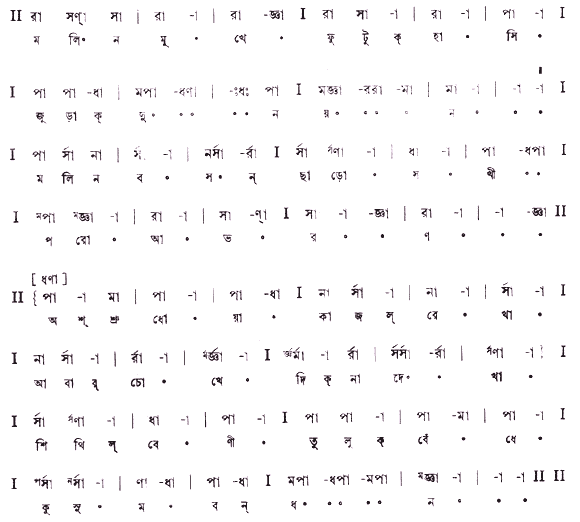 II রা সণ্া সা | রা -া | রা -জ্ঞা I রা সা -া | রা -া | পা -া I
ম লি॰ ন মু ॰ খে ॰ ফু টু ক্ হা ॰ সি ॰
I পা পা -ধা | মপা -ধণা | -ঃধঃ পা I মজ্ঞা -বরা -মা | মা -া | -া -া I
জু ড়া ক্ দু॰ ॰॰ ॰॰ ন য়॰ ॰॰ ॰ ন ॰ ॰ ॰
I পা র্সা না | র্সা -া | নর্সা -র্রা I র্সা র্সণা -া | ধা -া | পা -ধপা I
ম লি ন ব ॰ স॰ ন্ ছা ড়ো ॰ স ॰ খী ॰॰
I মপা মজ্ঞা -া | রা -া | সা -ণ্া I সা -া -জ্ঞা | রা -া | -া -জ্ঞা II
প রো ॰ আ ॰ ভ ॰ র ॰ ॰ ণ ॰ ॰ ॰
[ ধণা ]
II {পা -া মা | পা -া | পা -ধা I না র্সা -া | না -া | র্সা -া I
অ শ্ রু ধো ॰ য়া ॰ কা জ ল্ রে ॰ খা ॰
I না র্সা -া | র্রা -া | র্মর্জ্ঞা -া I র্জ্ঞর্মা -া র্রা | র্সর্সা -র্রা | র্সণা -া} I
আ বা র্ চো ॰ খে ॰ দি ক্ না দে॰ ॰ খা ॰
I র্সা র্সণা -া | ধা -া | পা -া I পা পা -া | পা -মা | পা -া I
শি থি ল্ বে ॰ ণী ॰ তু লু ক্ বেঁ ॰ ধে ॰
I পর্সা নর্সা -া | ণা -ধা | পা -ধা I মপা -ধপা -মপা | মজ্ঞা -া | -া -া II II
কু সু ॰ ম ॰ ব ন্ ধ॰ ॰॰ ॰॰ ন ॰ ॰ ॰